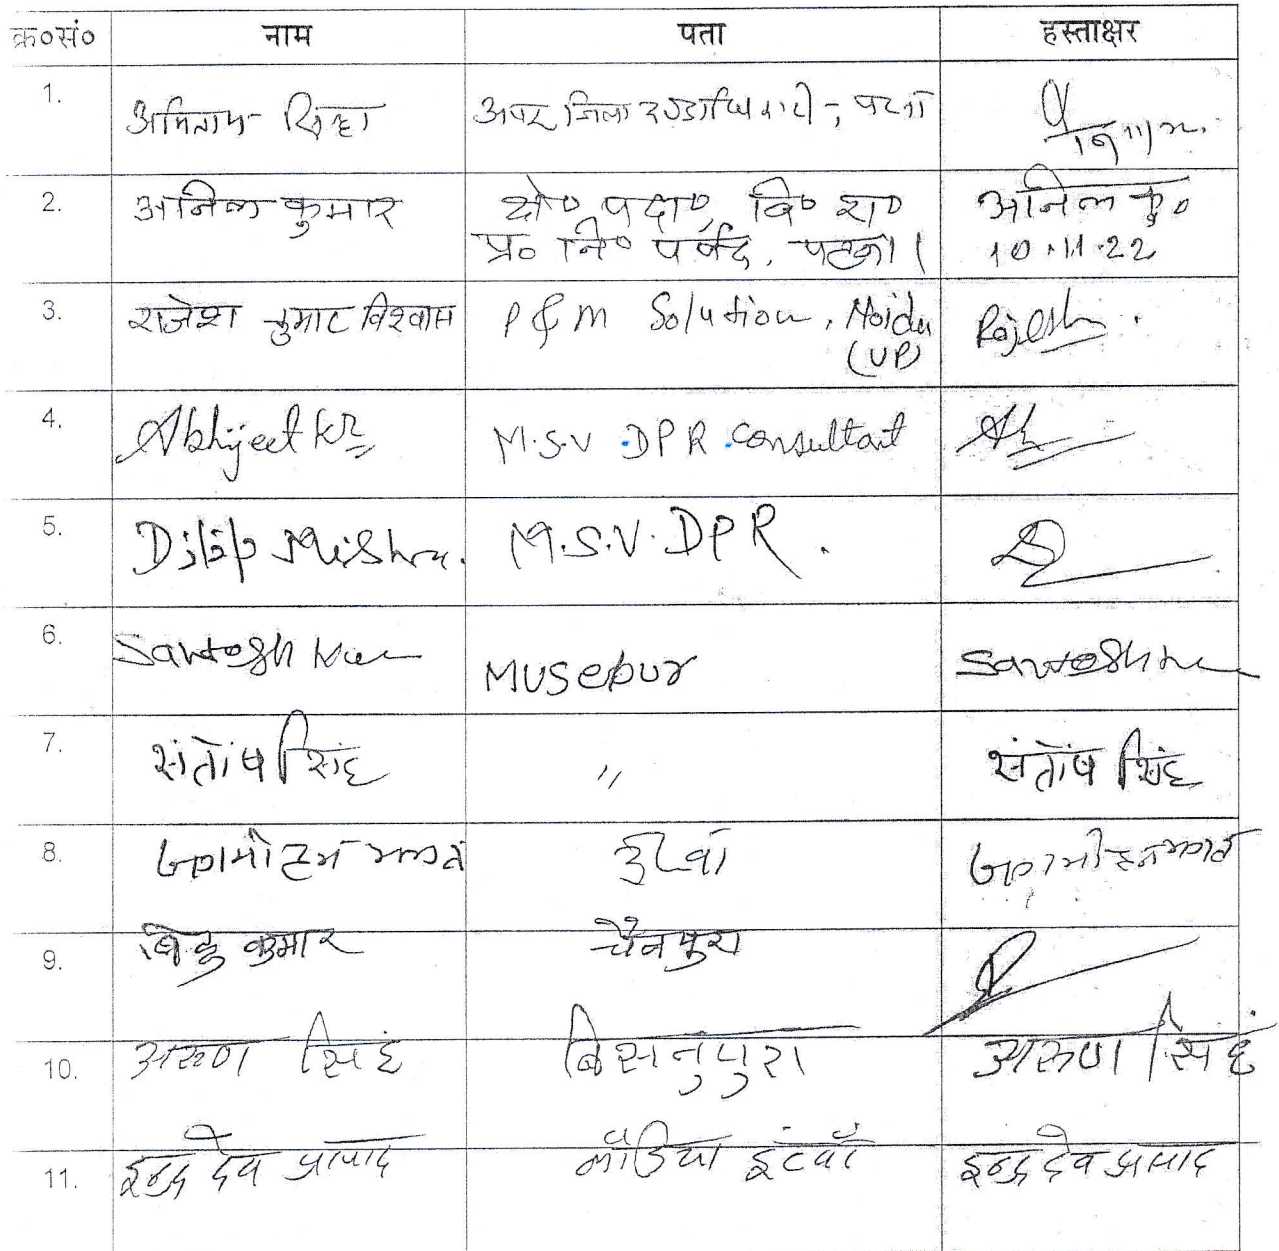 क्र०सं० नाम पता हस्ताक्षर
1. अमिताभ सिन्हा अपर जिला दण्डाधिकारी, पटना
2. अनिल कुमार क्षे० पदा०, बि० रा० अनिल कु०
प्र० नि० पर्षद, पटना। 10.11.22
3. राजेश कुमार विश्वास P & M Solution, Noida Rajesh
(UP)
4. Abhijeet Kr M.S.V. DPR Consultant
5. Dilip Mishra. M.S.V. DPR.
6. Santosh Musepur Santosh
7. संतोष सिंह " संतोष सिंह
8.
9. कुमार चैनपुरा
10. अरुण सिंह बिसनुपुरा अरुण सिंह
11. इन्द्र देव प्रसाद इंटवाँ इन्द्र देव प्रसाद